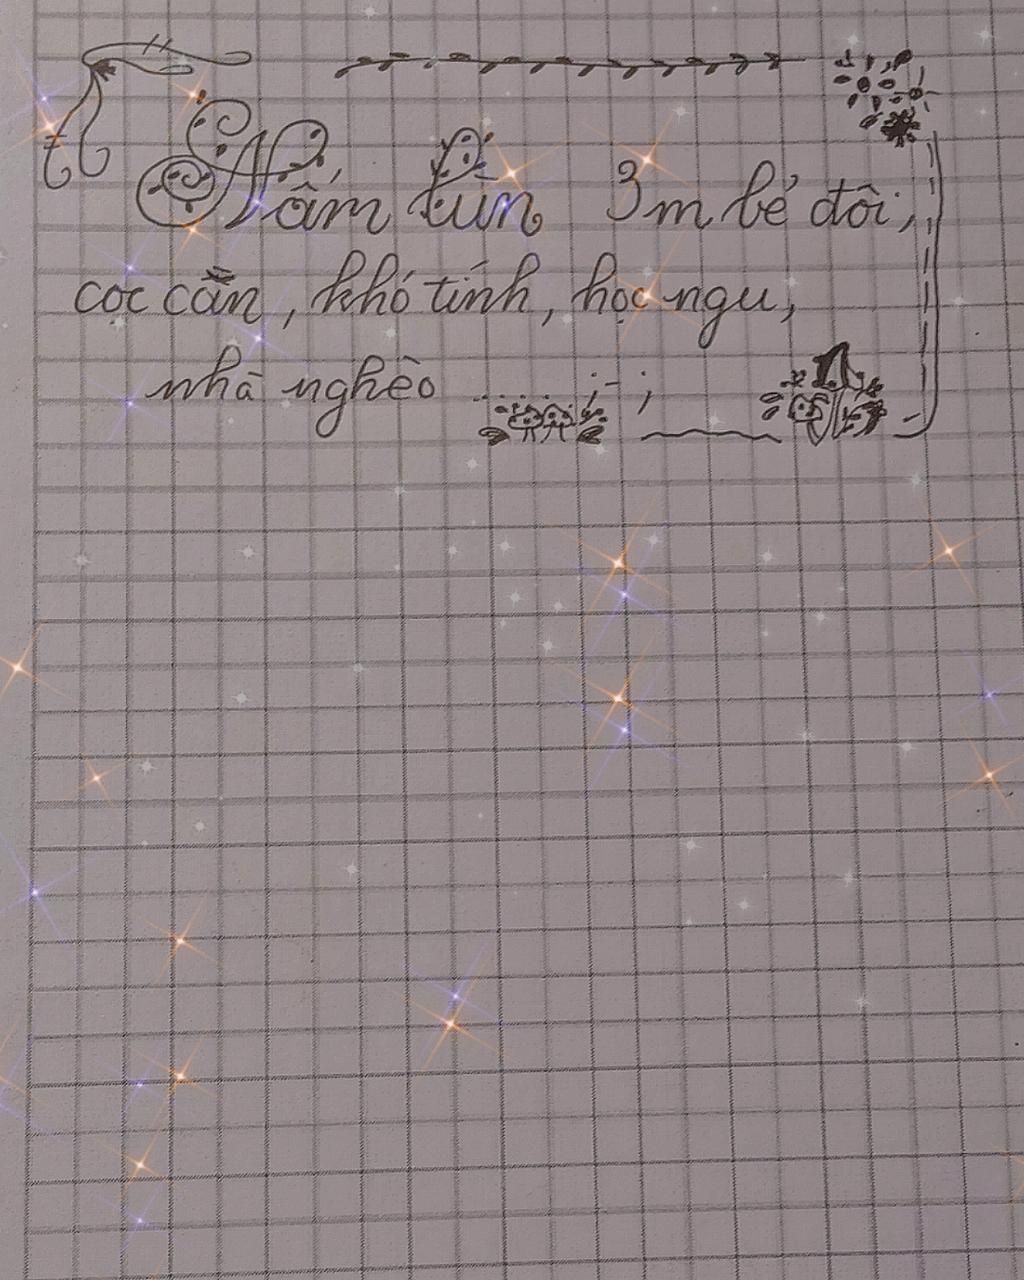 Nấm lùn 3m bẻ đôi,
cọc cằn, khó tính, học ngu,
nhà nghèo